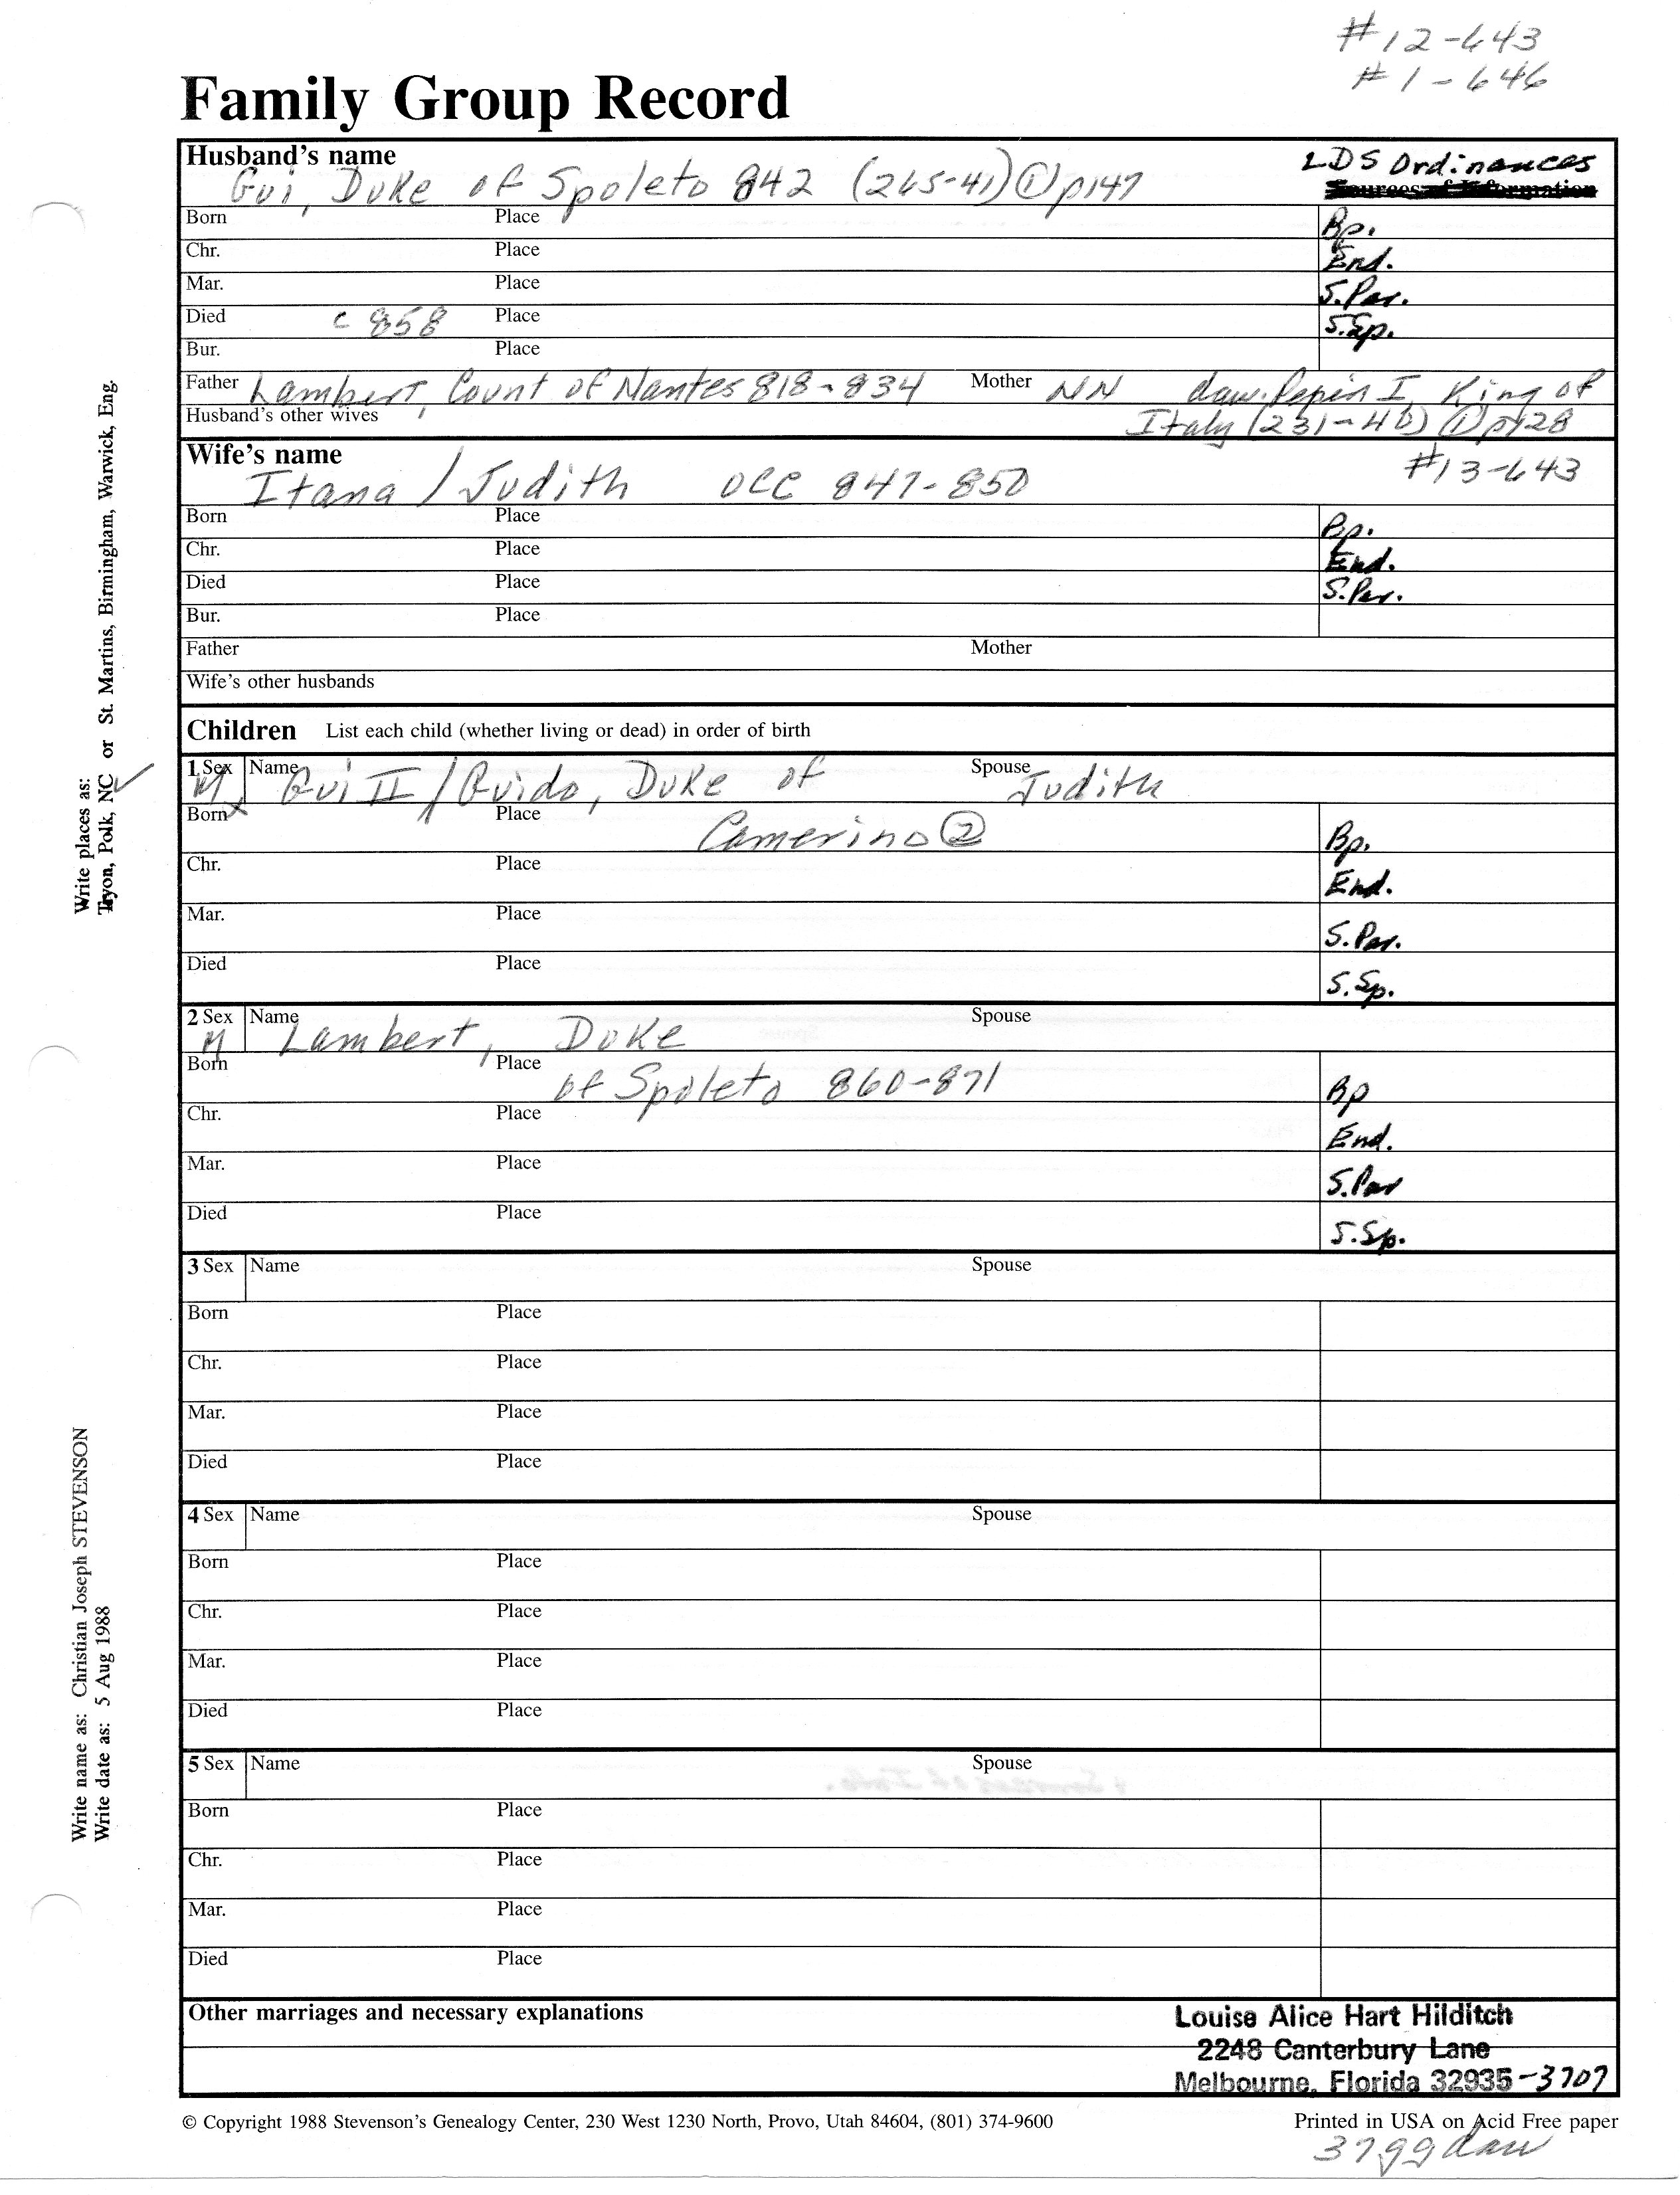 #12-643
#1-646
Family Group Record
Husband's name LDS Ordinances
Gui, Duke of Spoleto 842 (265-41) ① p147 Sources of Information
Born Place Bp.
Chr. Place End.
Mar. Place S.Par.
Died c 858 Place S.Sp.
Bur. Place
Father Lambert, Count of Nantes 818-834 Mother NN dau. Pepin I, King of
Husband's other wives Italy (231-4b) ① p128
Wife's name #13-643
Itana / Judith occ 847-850
Born Place Bp.
Chr. Place End.
Died Place S.Par.
Bur. Place
Father Mother
Wife's other husbands
Children List each child (whether living or dead) in order of birth
1 Sex M Name Gui II / Guido, Duke of Spouse Judith
Born x Place Camerino ② Bp.
Chr. Place End.
Mar. Place S.Par.
Died Place S.Sp.
2 Sex M Name Lambert, Duke Spouse
Born Place of Spoleto 860-871 Bp
Chr. Place End.
Mar. Place S.Par
Died Place S.Sp.
3 Sex Name Spouse
Born Place
Chr. Place
Mar. Place
Died Place
4 Sex Name Spouse
Born Place
Chr. Place
Mar. Place
Died Place
5 Sex Name Spouse
Born Place
Chr. Place
Mar. Place
Died Place
Other marriages and necessary explanations
Louise Alice Hart Hilditch
2248 Canterbury Lane
Melbourne, Florida 32935-3707
© Copyright 1988 Stevenson's Genealogy Center, 230 West 1230 North, Provo, Utah 84604, (801) 374-9600 Printed in USA on Acid Free paper
37ggdau
Write places as:
Tryon, Polk, NC or St. Martins, Birmingham, Warwick, Eng.
Write name as: Christian Joseph STEVENSON
Write date as: 5 Aug 1988